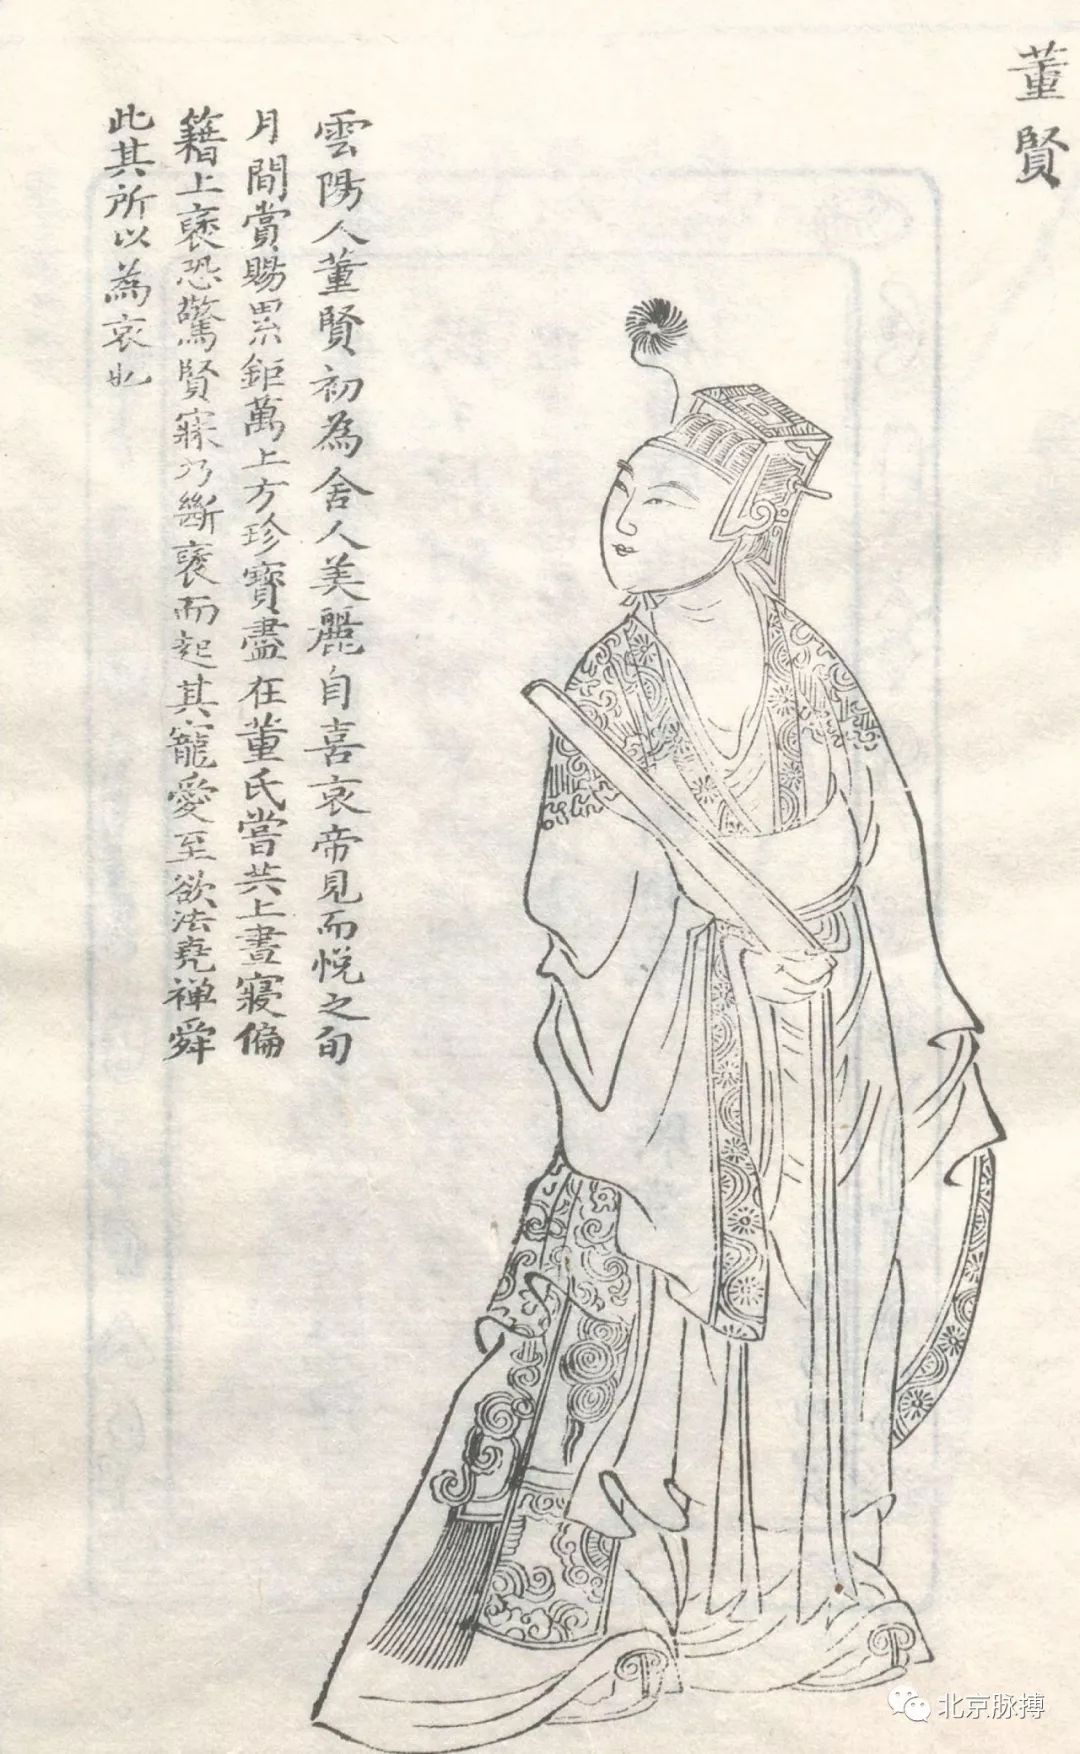 董賢
雲陽人董賢初為舍人美麗自喜哀帝見而悅之旬
月間賞賜累鉅萬上方珍寶盡在董氏嘗共上晝寢偏
籍上褏恐驚賢寐乃斷褏而起其寵愛至欲法堯禅舜
此其所以為哀也
北京脉搏